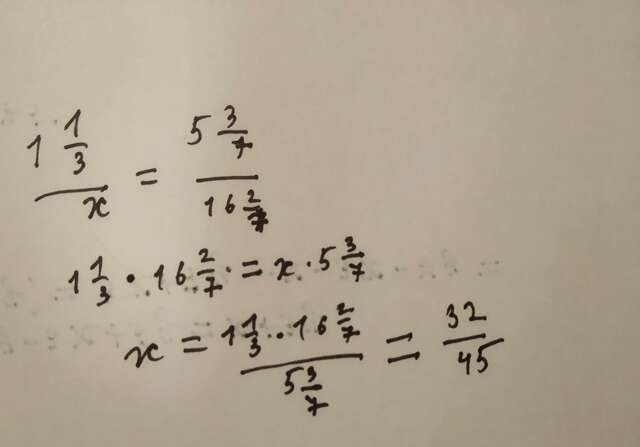 1 1/3 / x = 5 3/7 / 16 2/7
1 1/3 · 16 2/7 = x · 5 3/7
x = 1 1/3 · 16 2/7 / 5 3/7 = 32/45